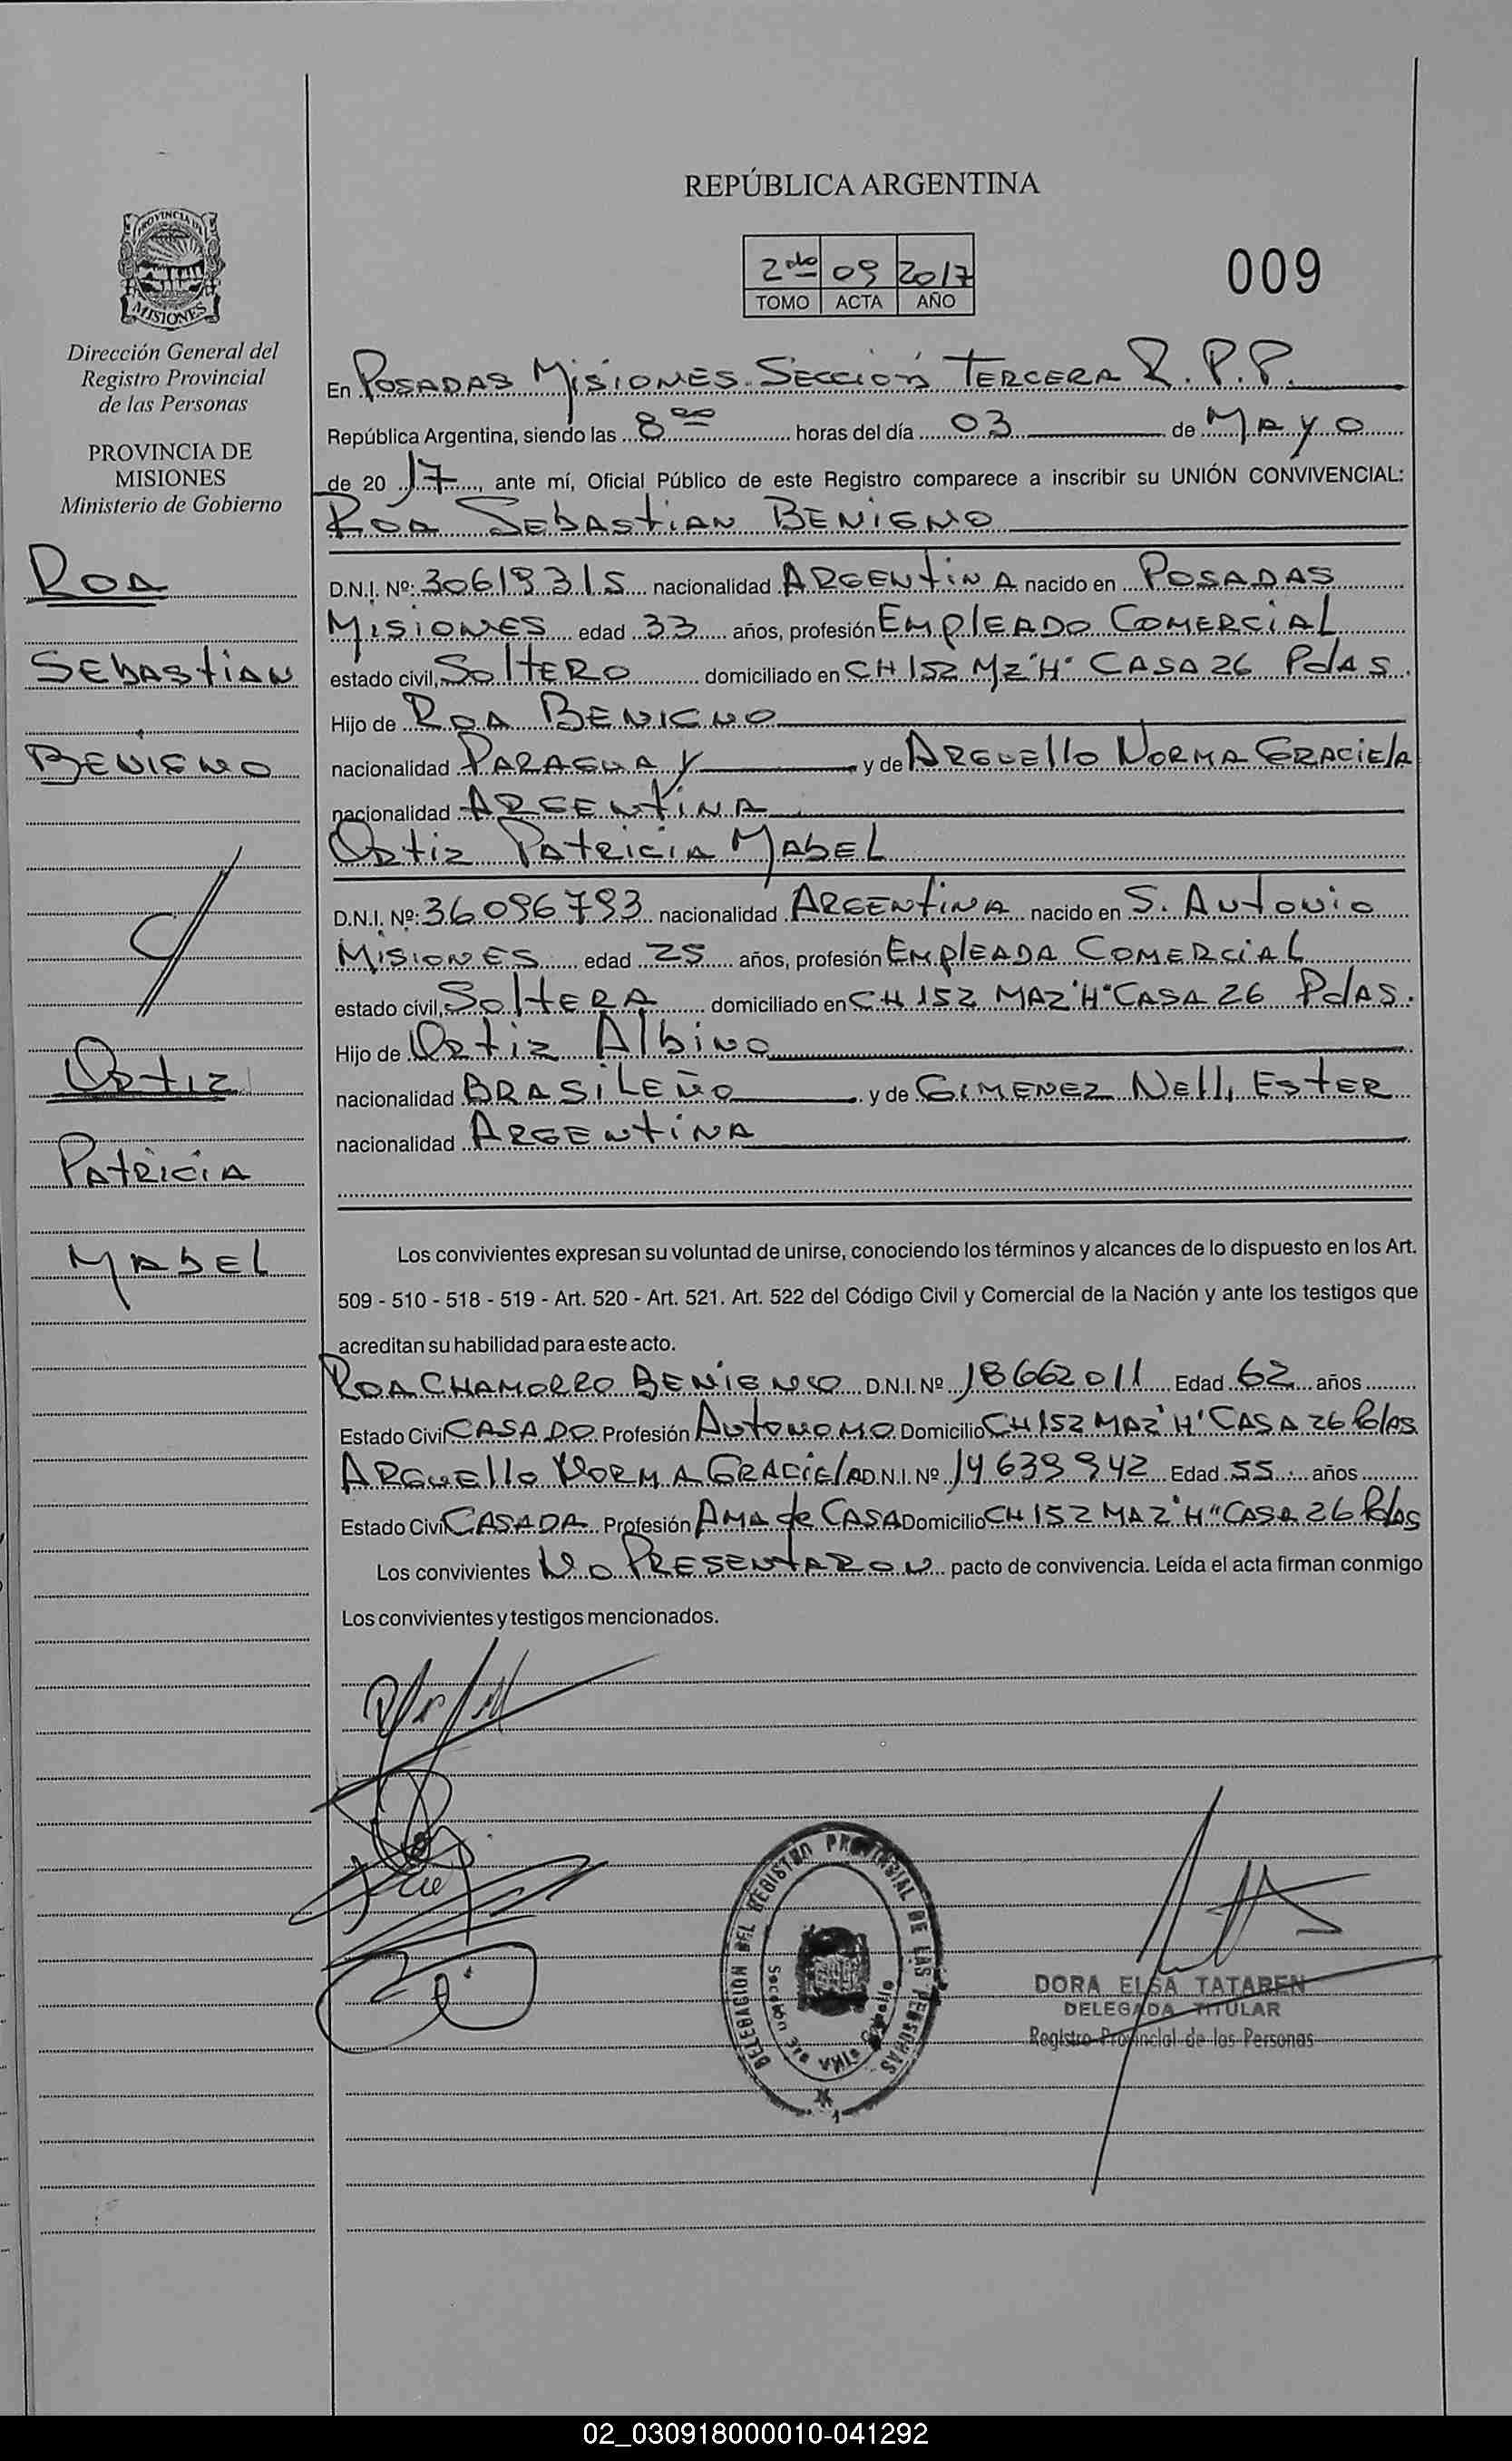 REPÚBLICA ARGENTINA
2do 09 2017
TOMO ACTA AÑO
009
PROVINCIA DE
MISIONES
Dirección General del
Registro Provincial
de las Personas
PROVINCIA DE
MISIONES
Ministerio de Gobierno
ROA
SEBASTIAN
BENIGNO
ORTIZ
PATRICIA
MABEL
En POSADAS MISIONES. SECCIÓN TERCERA R.P.P.
República Argentina, siendo las 8 00 horas del día 03 de MAYO
de 20 17, ante mí, Oficial Público de este Registro comparece a inscribir su UNIÓN CONVIVENCIAL:
ROA SEBASTIAN BENIGNO
D.N.I. Nº: 30619315 nacionalidad ARGENTINA nacido en POSADAS
MISIONES edad 33 años, profesión EMPLEADO COMERCIAL
estado civil, SOLTERO domiciliado en CH 152 MZ "H" CASA 26 PdAS.
Hijo de ROA BENIGNO
nacionalidad PARAGUAY y de ARGUELLO NORMA GRACIELA
nacionalidad ARGENTINA
ORTIZ PATRICIA MABEL
D.N.I. Nº: 36096793 nacionalidad ARGENTINA nacido en S. ANTONIO
MISIONES edad 25 años, profesión EMPLEADA COMERCIAL
estado civil, SOLTERA domiciliado en CH 152 MAZ "H" CASA 26 PdAS.
Hijo de ORTIZ ALBINO
nacionalidad BRASILEÑO y de GIMENEZ NELLI ESTER
nacionalidad ARGENTINA
Los convivientes expresan su voluntad de unirse, conociendo los términos y alcances de lo dispuesto en los Art.
509 - 510 - 518 - 519 - Art. 520 - Art. 521. Art. 522 del Código Civil y Comercial de la Nación y ante los testigos que
acreditan su habilidad para este acto.
ROA CHAMORRO BENIGNO D.N.I. Nº 18662011 Edad 62 años
Estado Civil CASADO Profesión AUTONOMO Domicilio CH 152 MAZ "H" CASA 26 PdAS
ARGUELLO NORMA GRACIELA D.N.I. Nº 14639942 Edad 55 años
Estado Civil CASADA Profesión AMA de CASA Domicilio CH 152 MAZ "H" CASA 26 PdAS
Los convivientes NO PRESENTARON pacto de convivencia. Leída el acta firman conmigo
Los convivientes y testigos mencionados.
DELEGACION DEL REGISTRO PROVINCIAL DE LAS PERSONAS
DORA ELSA TATAREN
DELEGADA TITULAR
Registro Provincial de las Personas
02_030918000010-041292